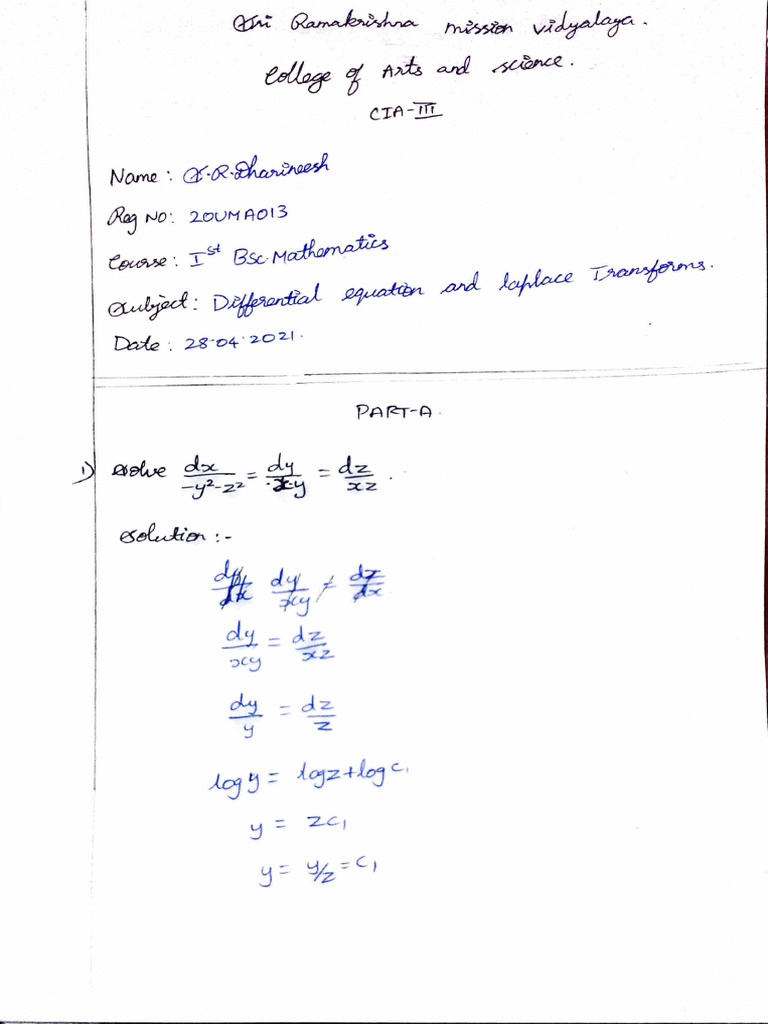 Sri Ramakrishna mission vidyalaya.
College of Arts and science.
CIA-III
Name: S.R.Dharineesh
Reg No: 20UMA013
Course: Ist BSc.Mathematics
Subject: Differential equation and laplace Transforms.
Date: 28.04.2021.
PART-A.
1) solve dx/-y²-z² = dy/xy = dz/xz.
solution:-
dy/xy = dz/xz
dy/y = dz/z
log y = log z + log c₁
y = zc₁
y = y/z = c₁